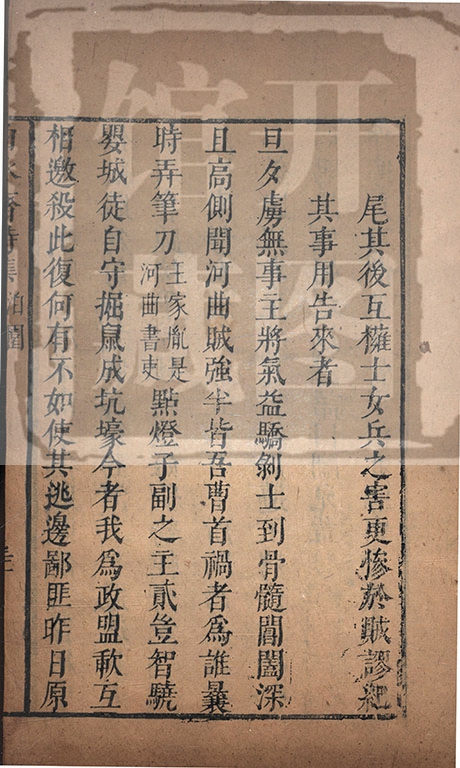 尾其後互擁士女兵之害更慘於賊謬紀
其事用告來者
旦夕虜無事主將氣益驕剝士到骨髓閶闔深
且高側聞河曲賊強半皆吾曹首禍者爲誰曩
時弄筆刀王家胤是河曲書吏點燈子副之主貳豈智驍
嬰城徒自守掘鼠成坑壕今者我爲政盟歃互
相邀殺此復何有不如使其逃邊鄙匪昨日原